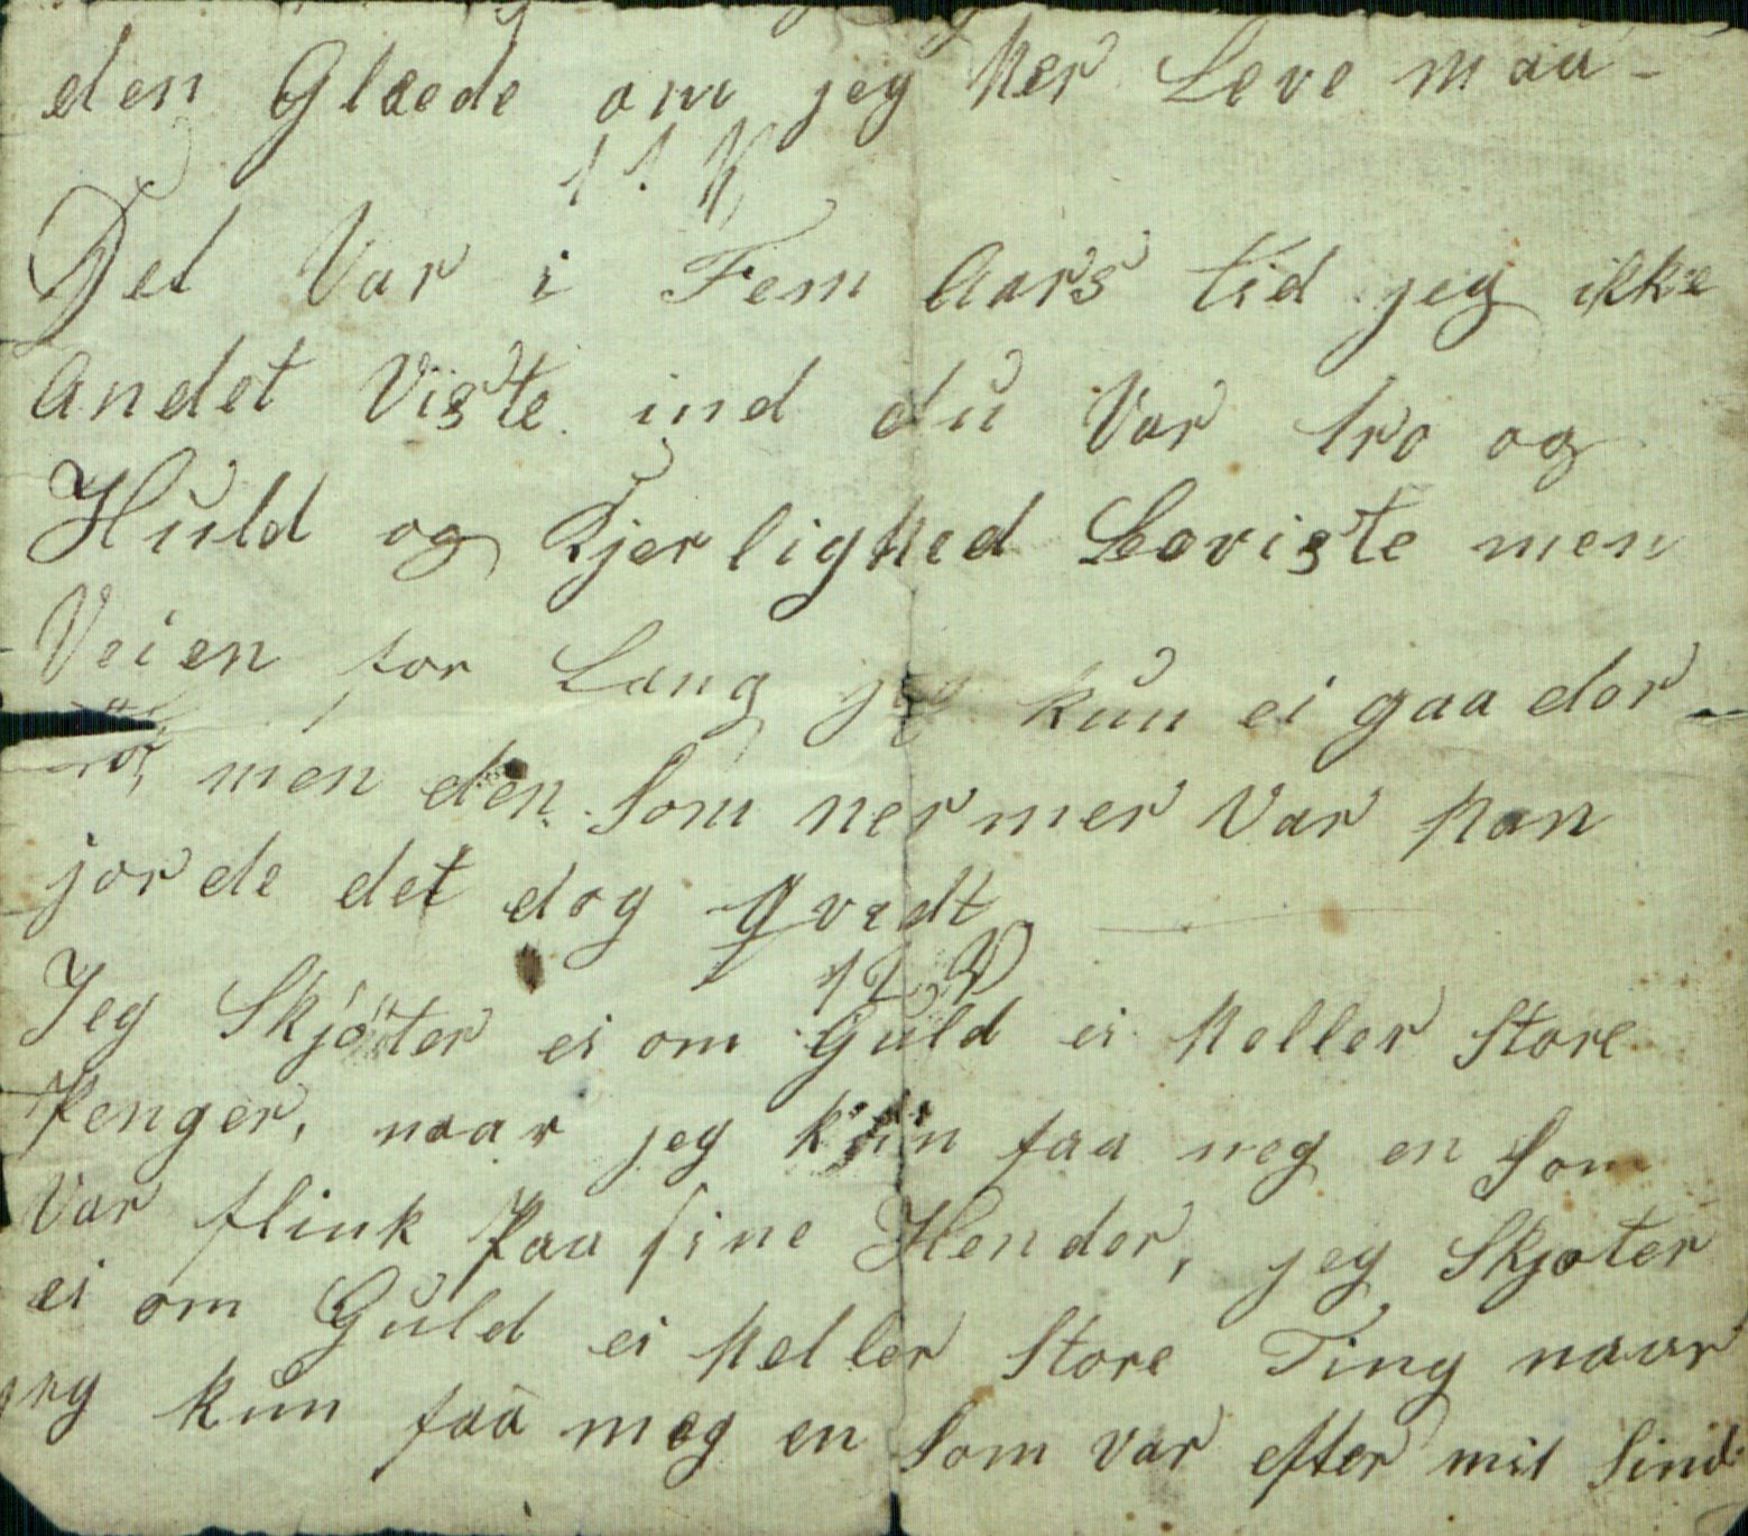 den Glæde om jeg her Leve maa -
11 V
Det Var i Fem Aars tid jeg ikke
Andet Viste ind du Var tro og
Huld og Kjerlighed Beviste men
Veien for Lang jeg kun ei gaa der
men den Som nermer Var han
jorde det dog qvedt
12 V
Jeg Skjøter ei om Guld ei heller Store
Penger, naar jeg kun faa meg en Som
Var flink Paa sine Hender, jeg Skjøter
ei om Guld ei heller Store Ting naar
jeg kun faa meg en Som var efter mit Sind